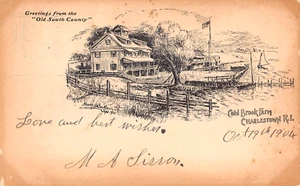 Greetings from the
"Old South County"
Cold Brook Farm
CHARLESTOWN R.I.
Love and best wishes.
Oct 19th 1904
M A Sisson.